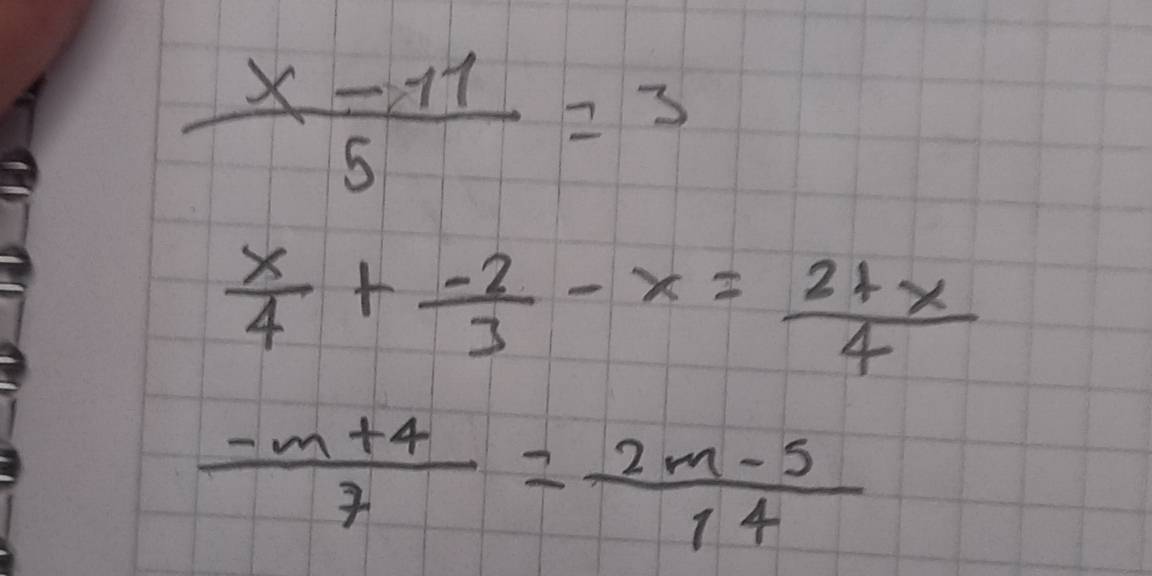 (x - 11)/5 = 3
x/4 + -2/3 - x = (2 + x)/4
(-m + 4)/7 = (2m - 5)/14